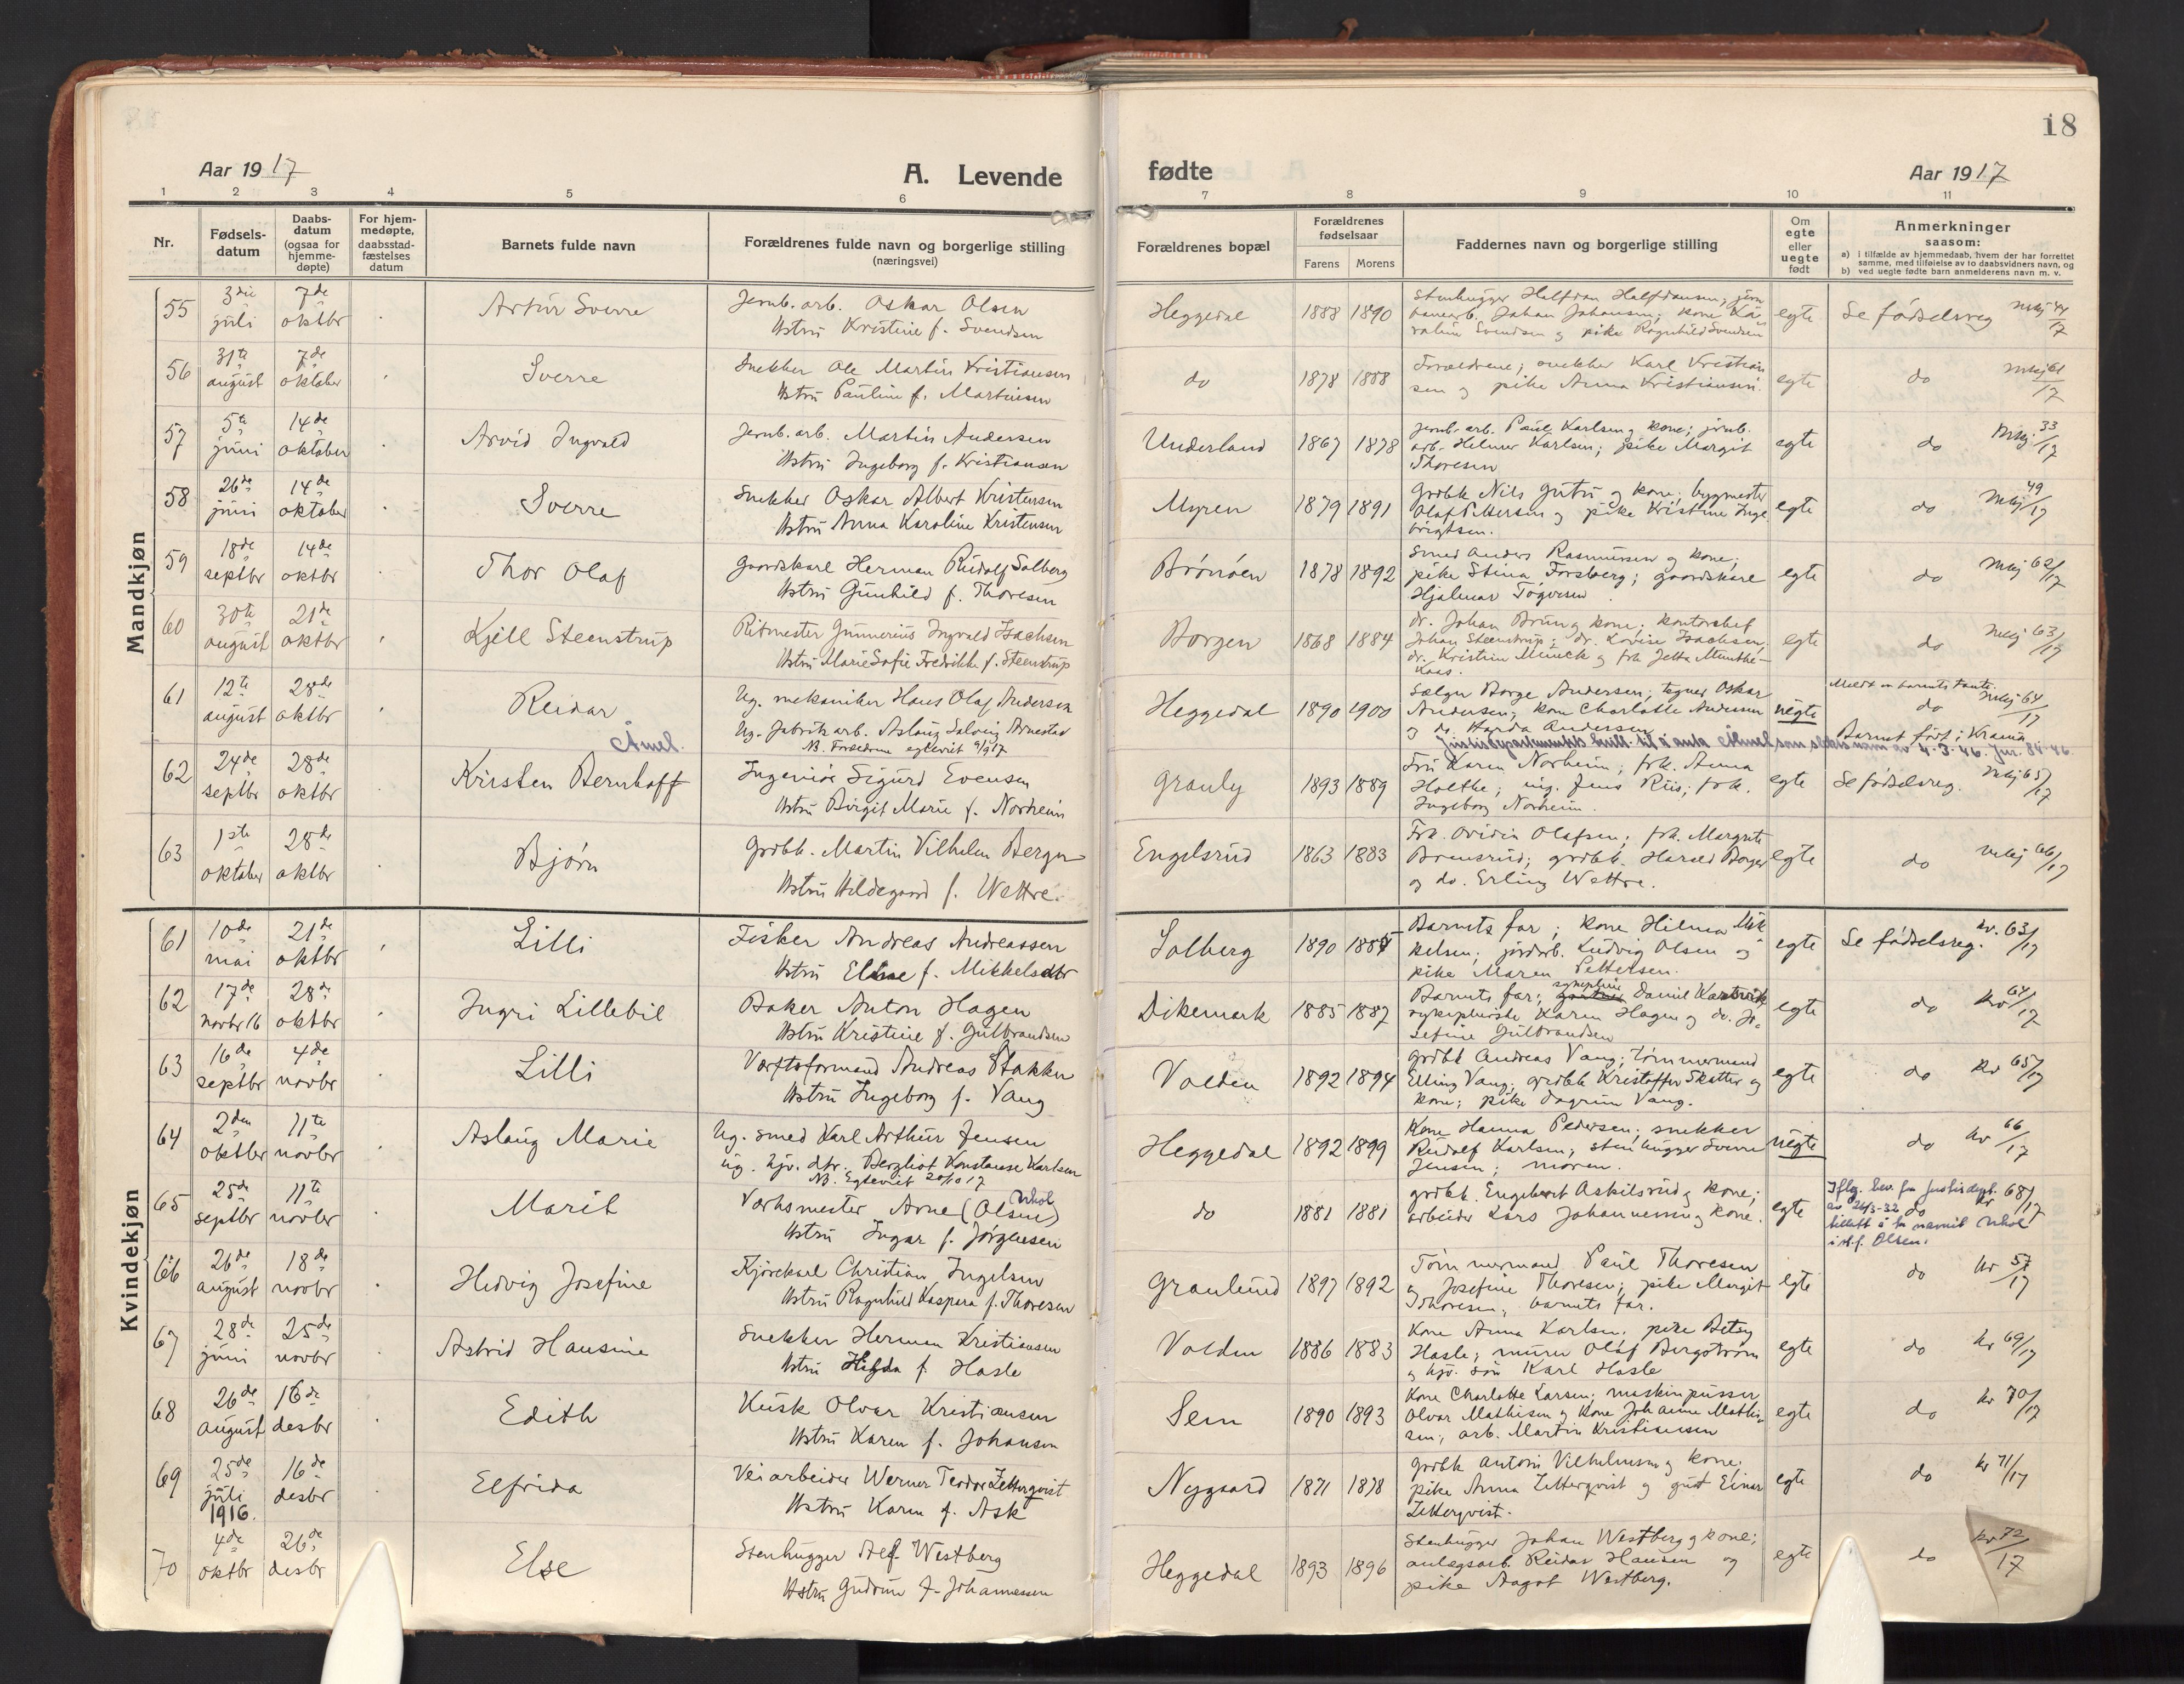 18
Aar 1917
A. Levende fødte
Aar 1917
1 2 3 4 5 6 7 8 9 10 11
Nr.
Fødsels-
datum
Daabs-
datum
(ogsaa for
hjemme-
døpte)
For hjem-
medøpte,
daabsstad-
fæstelses
datum
Barnets fulde navn
Forældrenes fulde navn og borgerlige stilling
(næringsvei)
Forældrenes bopæl
Forældrenes
fødselsaar
Farens Morens
Faddernes navn og borgerlige stilling
Om
egte
eller
uegte
født
Anmerkninger
saasom:
a) i tilfælde av hjemmedaab, hvem der har forrettet
samme, med tilføielse av to daabsvidners navn, og
b) ved uegte fødte barn anmelderens navn m. v.
Mandkjøn
55 3die juli 7de oktbr Artur Sverre
Jernb. arb. Oskar Olsen
Hustru Kristine f. Svendsen
Heggedal 1888 1890
Stenhugger Halfdan Halfdansen, jern
banearb. Johan Johansen; kone Ka
roline Svendsen og pike Ragnhild Svendsen
egte Se fødselsreg
56 31te august 7de oktober Sverre
Snekker Ole Martin Kristiansen
Hustru Pauline f. Martinsen
do 1878 1888
Forældrene; snekker Karl Kristian
sen og pike Anna Kristiansen.
egte do 61/17
57 5te juni 14de oktober Arvid Ingvald
Jernb. arb. Martin Andersen
Hustru Ingeborg f. Kristiansen
Underland 1867 1878
Jernb. arb. Paul Karlsen og kone; jernb.
arb. Helmer Karlsen; pike Margit
Thoresen
egte do 33/17
58 26de juni 14de oktober Sverre
Snekker Oskar Albert Kristensen
Hustru Anna Karoline Kristensen
Myren 1879 1891
Grdbk Nils Gutu og kone; bygmester
Olaf Pettersen og pike Kristine Inge
brigtsen.
egte do 49/17
59 18de septbr 14de oktbr Thor Olaf
Gaardskarl Herman Rudolf Solberg
Hustru Gunhild f. Thoresen
Brønøen 1878 1892
Smed Anders Rasmussen og kone;
pike Stina Forsberg; gaardskarl
Hjalmar Togersen.
egte do 62/17
60 30te august 21de oktbr Kjell Steenstrup
Ritmester Gunnerius Ingvald Isachsen
Hustru Marie Sofie Fredrikke f. Steenstrup
Borgen 1868 1884
dr. Johan Brun og kone; kontorchef
Johan Steenstrup; dr. Lovise Isachsen;
dr. Kristine Munck og frk Jetta Munthe-
Kaas.
egte do 63/17
61 12te august 28de oktbr Reidar
Åmel.
Ug. mekaniker Hans Olaf Andersen
Ug. fabrikarb. Aslaug Solveig Arnestad
NB. Forældrene egteviet 9/9 17
Heggedal 1890 1900
Sælger Borge Andersen; tegner Oskar
Andersen; kone Charlotte Andersen
og do. Harda Andersen
uegte
Meldt av barnets tante.
do 64/17
Barnet født i Krania
62 24de septbr 28de oktbr Kirsten Bernhoff
Ingeniør Sigurd Evensen
Hustru Birgit Marie f. Norheim
Grauly 1893 1889
Fru Karen Norheim; frk. Anna
Holthe; ing. Jens Riis; frk.
Ingeborg Norheim.
egte Se fødselsreg. 65/17
63 1ste oktober 28de oktbr Bjørn
Grdbk. Martin Vilhelm Berger
Hustru Hildegaard f. Wettre.
Engelsrud 1863 1883
Frk. Ovidia Olafsen; frk. Margrete
Brensrud; grdbk. Harald Borger
og do. Erling Wettre.
egte do 66/17
Kvindekjøn
61 10de mai 21de oktbr Lilli
Fisker Andreas Andreassen
Hustru Elise f. Mikkelsdtr
Solberg 1890
Barnets far; kone Hilma Mik
kelsen; jordarb. Ludvig Olsen og
pike Maren Pettersen.
egte Se fødselsreg. kv. 63/17
62 17de novbr 16 28de oktbr Ingri Lillebil
Baker Anton Hagen
Hustru Kristine f. Gulbrandsen
Dikemark 1885 1887
Barnets far; Daniel
sykepleierske Karen Hagen og do. Jo-
sefine Gulbrandsen
egte do kv 64/17
63 16de septbr 4de novbr Lilli
Værftsformand Andreas Stokker
Hustru Ingeborg f. Vang
Volden 1892 1894
Grdbk Andreas Vang; tømmermand
Elling Vang; grdbk Kristoffer Skotter og
kone; pike Dagrun Vang.
egte do kv 65/17
64 2den oktber 11te novber Aslaug Marie
Ug. smed Karl Arthur Jensen
ug. hjv. dtr. Bergliot Konstanse Karlsen
NB. Egteviet 20/10 17
Heggedal 1892 1899
Kone Hanna Pedersen; snekker
Rudolf Karlsen; stenhugger Sverre
Jensen; moren.
uegte do kv 66/17
65 25de septbr 11te novber Marit
Verksmester Arne (Olsen) Uhol
Hustru Ingar f. Jørgensen
do 1881 1881
grdbk. Engebret Askilsrud og kone;
arbeider Lars Johannessen og kone.
egte do 68/17
Iflg. bev. fra Justisdept.
av 26/3-32
tillatt å ta navnet Uhol
i st. f. Olsen.
66 26de august 18de novbr Hedvig Josefine
Kjørekarl Christian Ingelsen
Hustru Ragnhild Kaspara f. Thoresen
Graulund 1897 1892
Tømmermand Paul Thoresen
og Josefine Thoresen; pike Margit
Thoresen; barnets far.
egte do kv 57/17
67 28de juni 25de novbr Astrid Hansine
Snekker Herman Kristiansen
Hustru Hilda f. Hasle
Volden 1886 1883
Kone Anna Karlsen; pike Betsy
Hasle; murer Olaf Bergstrøm
og hjv. søn Karl Hasle
egte do kv 69/17
68 26de august 16de desbr Edith
Kusk Olvar Kristiansen
Hustru Karen f. Johansen
Sem 1890 1893
Kone Charlotte Larsen; maskinpusser
Olvar Mathisen og kone Johanne Mathi-
sen; arb. Martin Kristiansen
egte do kv 70/17
69 25de juli 1916. 16de desbr Elfrida
Veiarbeider Werner Teodor Zetterqvist
Hustru Karen f. Ask
Nygaard 1871 1878
Grdbk Anton Vilhelmsen og kone;
pike Anna Zetterqvist og gut Einar
Zetterqvist.
egte do kv 71/17
70 4de oktbr 26de desbr Else
Stenhugger Alf Westberg
Hustru Gudrun f. Johannessen
Heggedal 1893 1896
Stenhugger Johan Westberg og kone;
anlegsarb. Reidar Hansen og
pike Aagot Westberg.
egte do kv 72/17